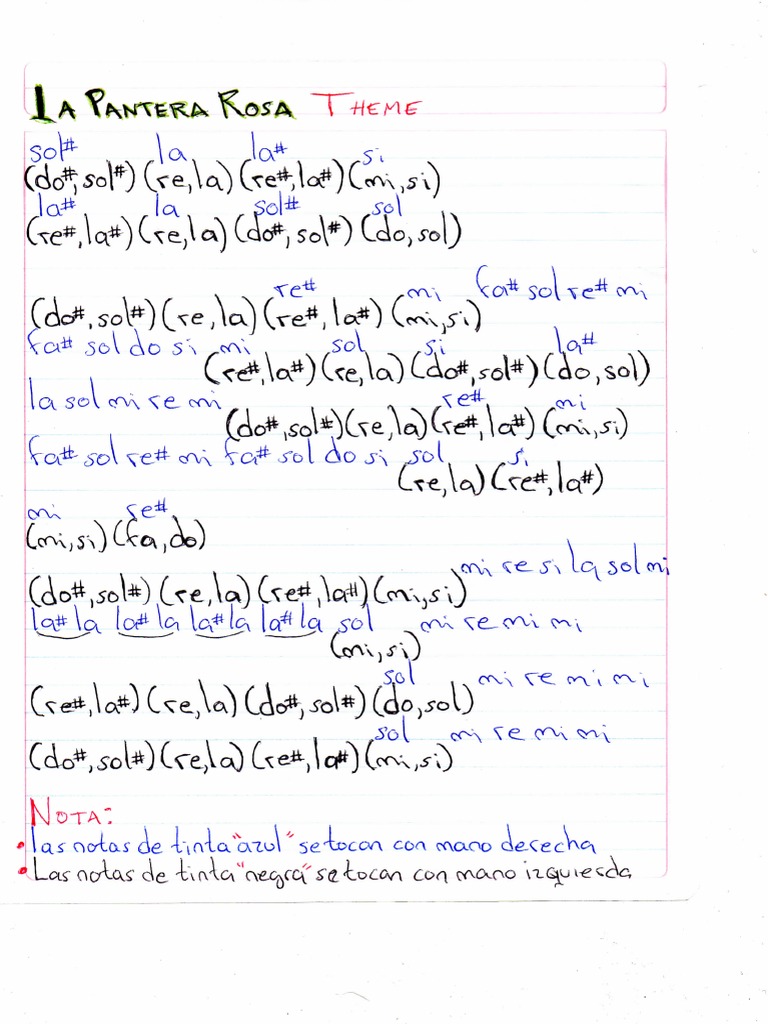 LA PANTERA ROSA THEME
sol# la la# si
(do#, sol#) (re, la) (re#, la#) (mi, si)
la# la sol# sol
(re#, la#) (re, la) (do#, sol#) (do, sol)
re# mi fa# sol re# mi
(do#, sol#) (re, la) (re#, la#) (mi, si)
fa# sol do si mi sol si la#
(re#, la#) (re, la) (do#, sol#) (do, sol)
la sol mi re mi re# mi
(do#, sol#) (re, la) (re#, la#) (mi, si)
fa# sol re# mi fa# sol do si sol si
(re, la) (re#, la#)
mi re#
(mi, si) (fa, do)
mi re si la sol mi
(do#, sol#) (re, la) (re#, la#) (mi, si)
la# la la# la la# la la# la sol mi re mi mi
(mi, si)
sol mi re mi mi
(re#, la#) (re, la) (do#, sol#) (do, sol)
sol mi re mi mi
(do#, sol#) (re, la) (re#, la#) (mi, si)
NOTA:
• las notas de tinta "azul" se tocan con mano derecha
• Las notas de tinta "negra" se tocan con mano izquierda